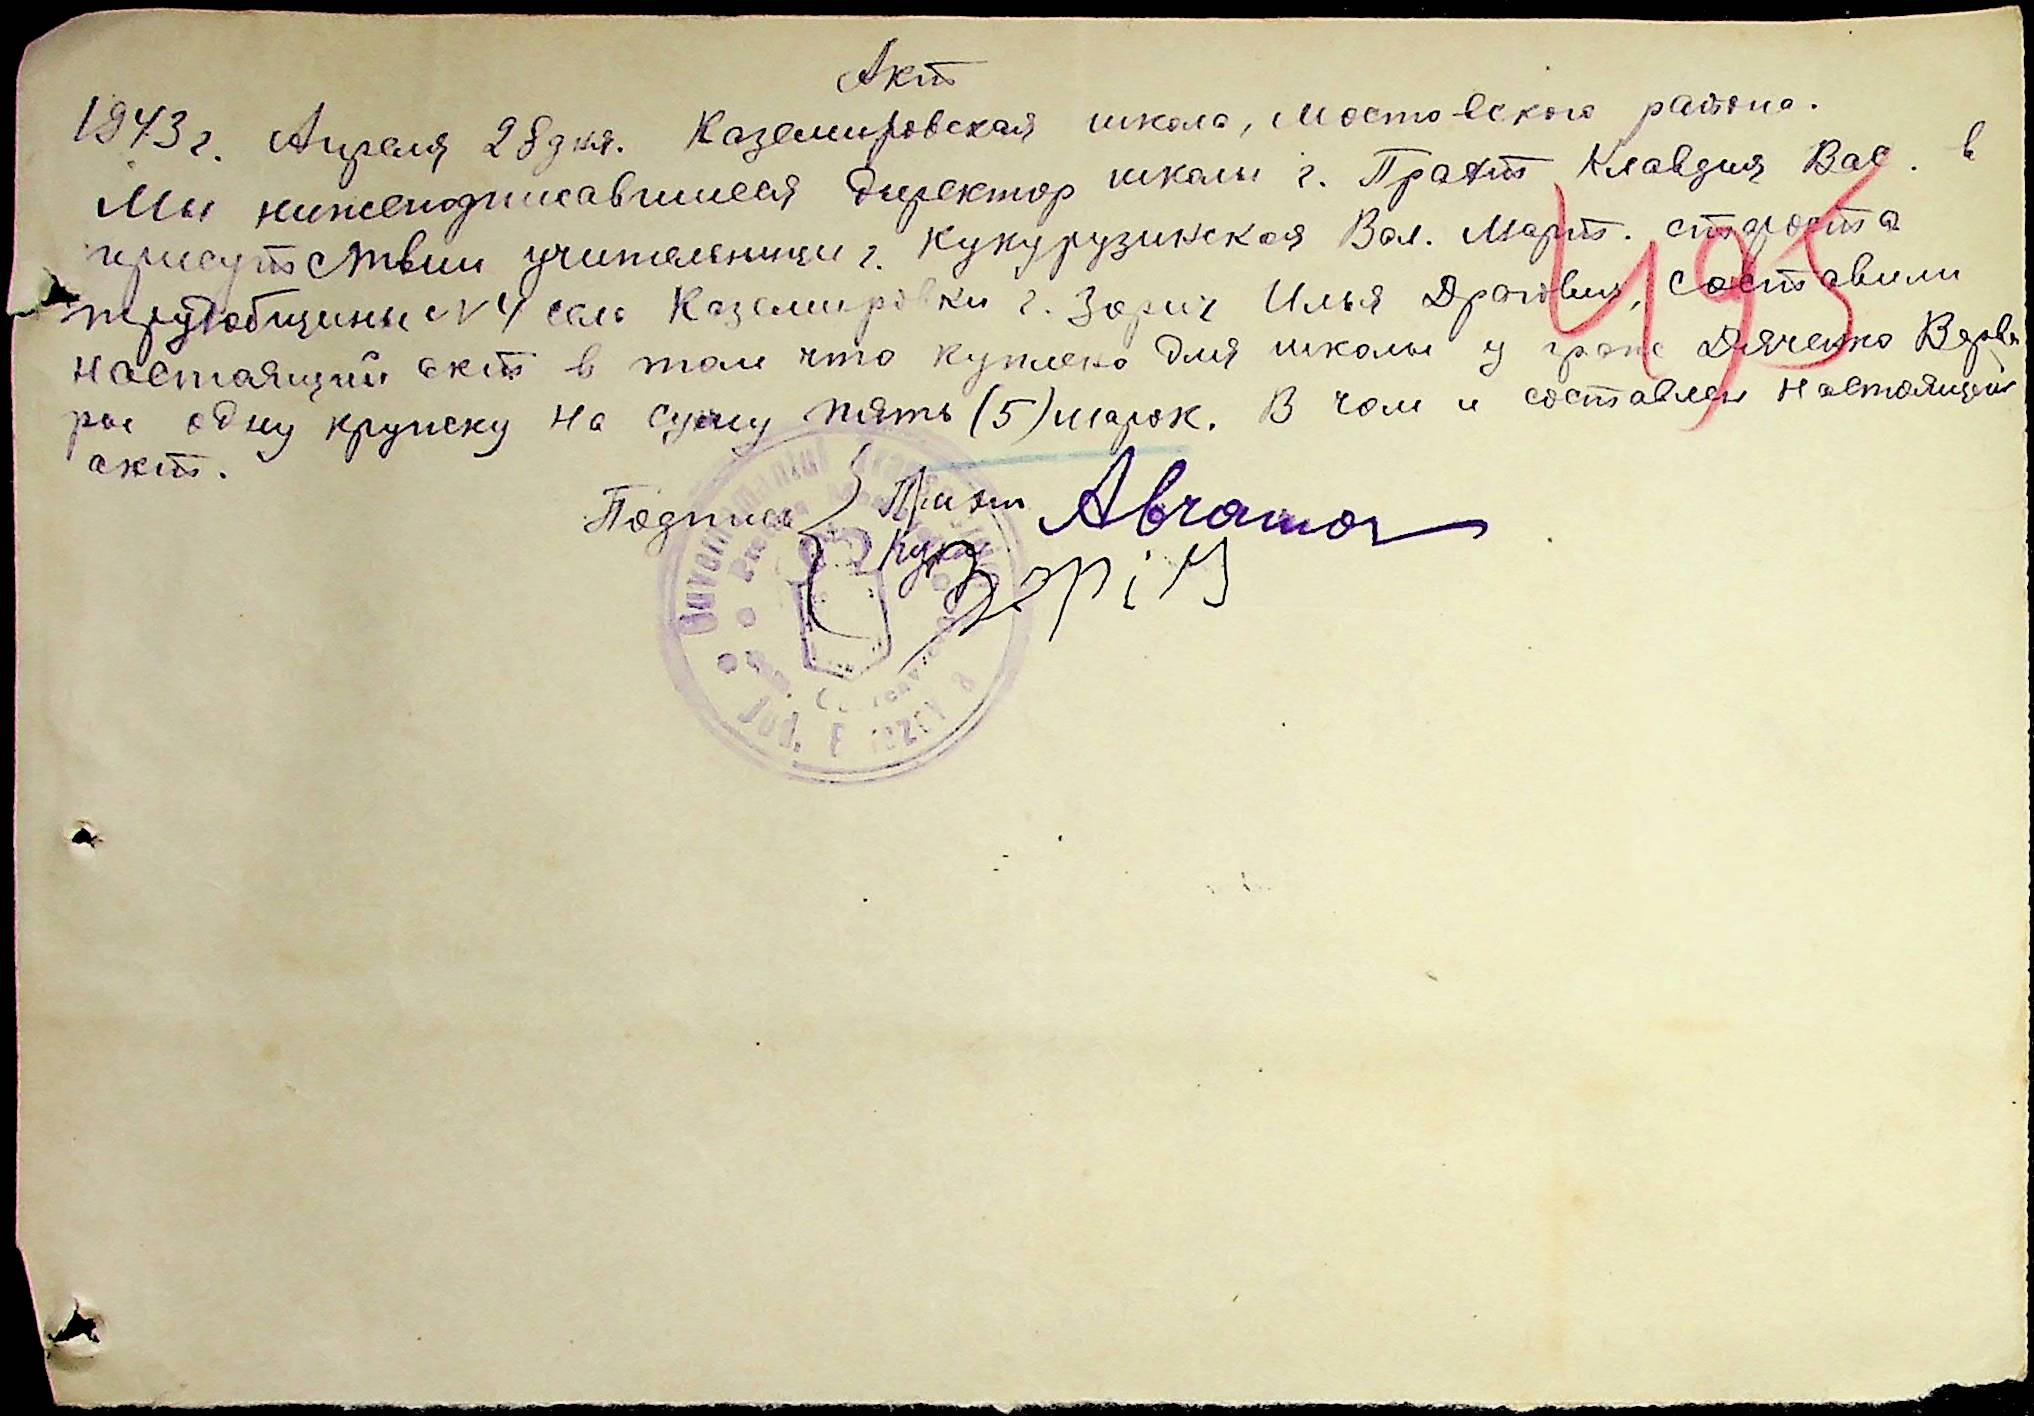 Акт
1943 г. Апреля 28 дня. Каземировская школа, Мостовского района.
Мы нижеподписавшиеся директор школы г. Прахт Клавдия Вас. в
присутствии учительницы г. Кукурузинская Вал. Март. староста
трудобщины N 4 села Каземировки г. Зорич Илья , составили
настоящий акт в том что куплено для школы у граж Дяченко Варва
ры одну кружку на сумму пять (5) марок. В чом и составлен настоящий
акт.
495
Подпись Прахт Avramov
Куку
Зоріч
Guvernământul
Jud.